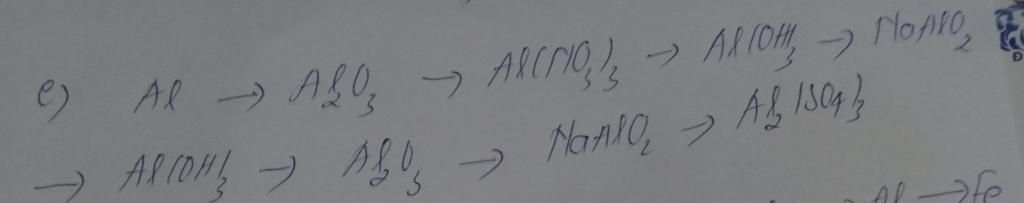 e) Al → Al₂O₃ → Al(NO₃)₃ → Al(OH)₃ → NaAlO₂
→ Al(OH)₃ → Al₂O₃ → NaAlO₂ → Al₂(SO₄)₃
Al → Fe